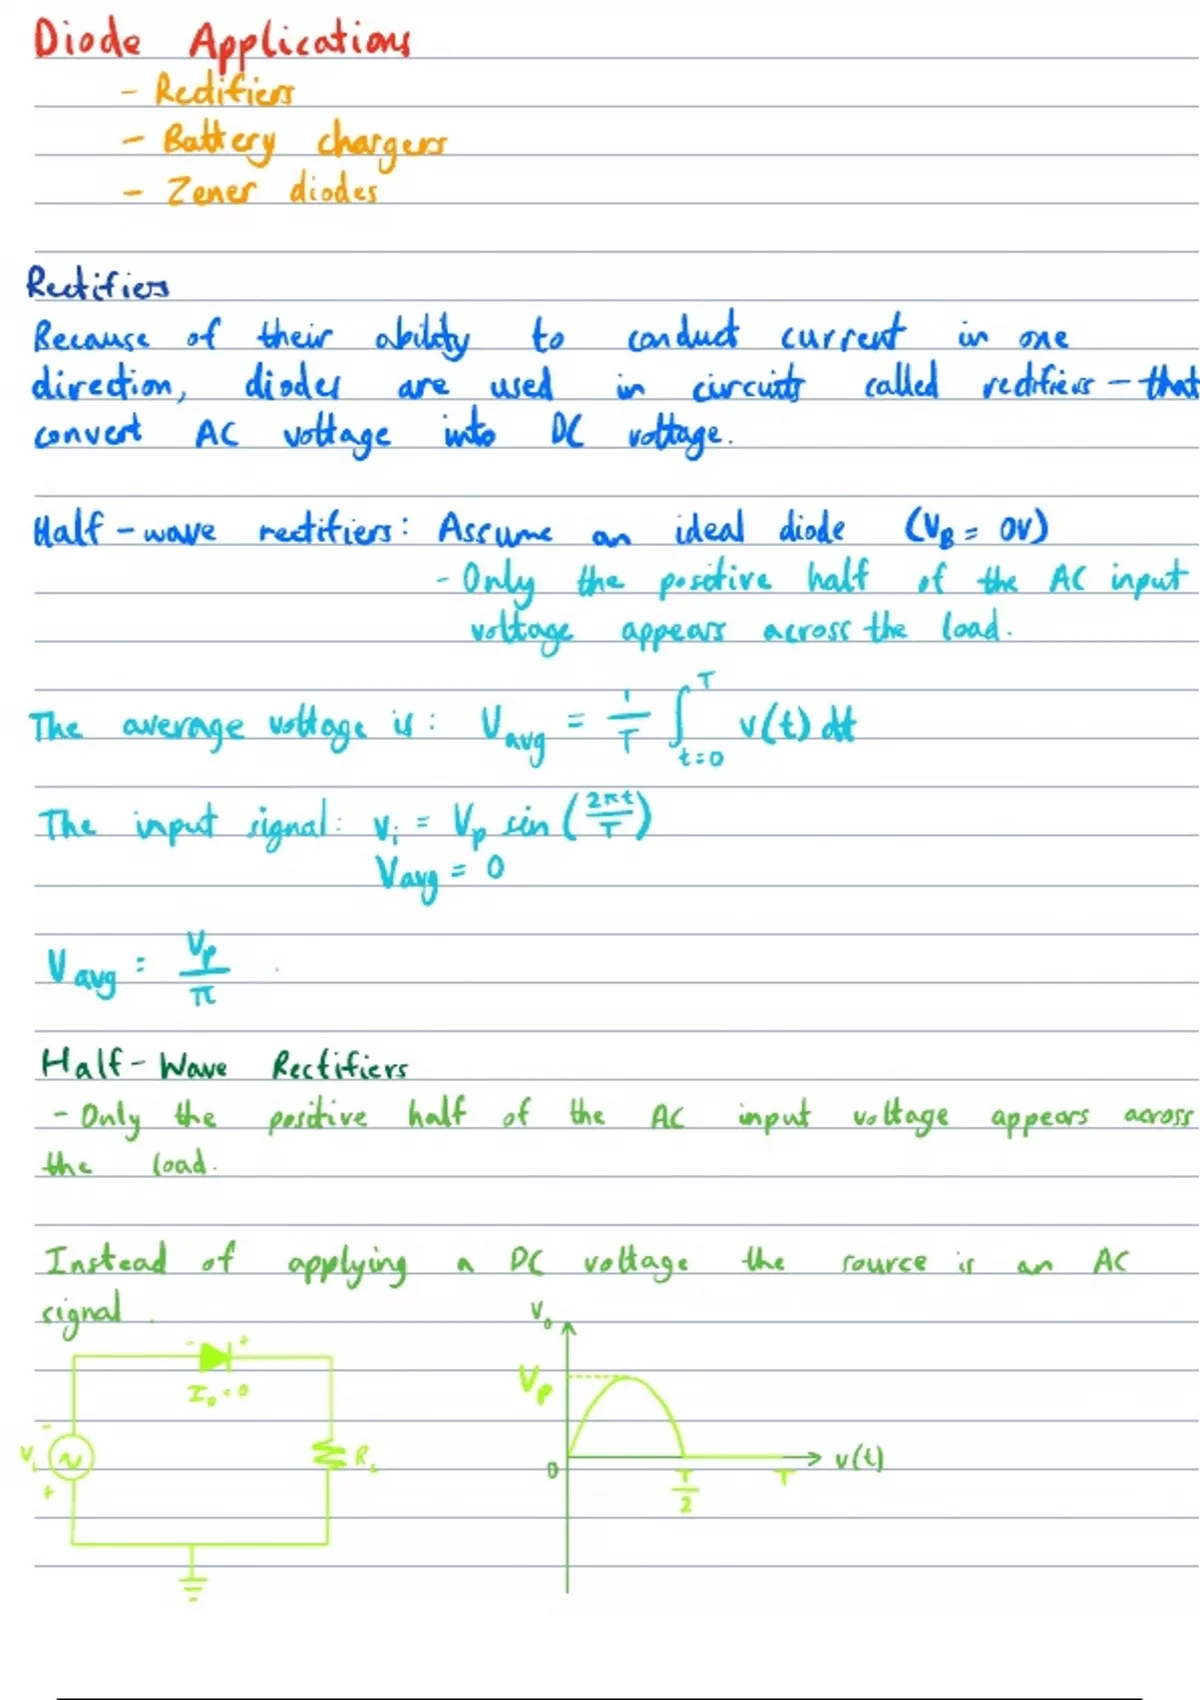 Diode Applications
- Rectifiers
- Battery chargers
- Zener diodes
Rectifiers
Because of their ability to conduct current in one
direction, diodes are used in circuits called rectifiers - that
convert AC voltage into DC voltage.
Half-wave rectifiers: Assume an ideal diode (V_B = 0V)
- Only the positive half of the AC input
voltage appears across the load.
The average voltage is: V_avg = 1/T ∫_{t=0}^{T} v(t) dt
The input signal: v_i = V_p sin (2πt/T)
V_avg = 0
V_avg = V_p/π
Half-Wave Rectifiers
- Only the positive half of the AC input voltage appears across
the load.
Instead of applying a DC voltage the source is an AC
signal.
- +
I_D = 0
-
V_i ~
+
R_L
V_o
V_p
0
T/2
T
v(t)